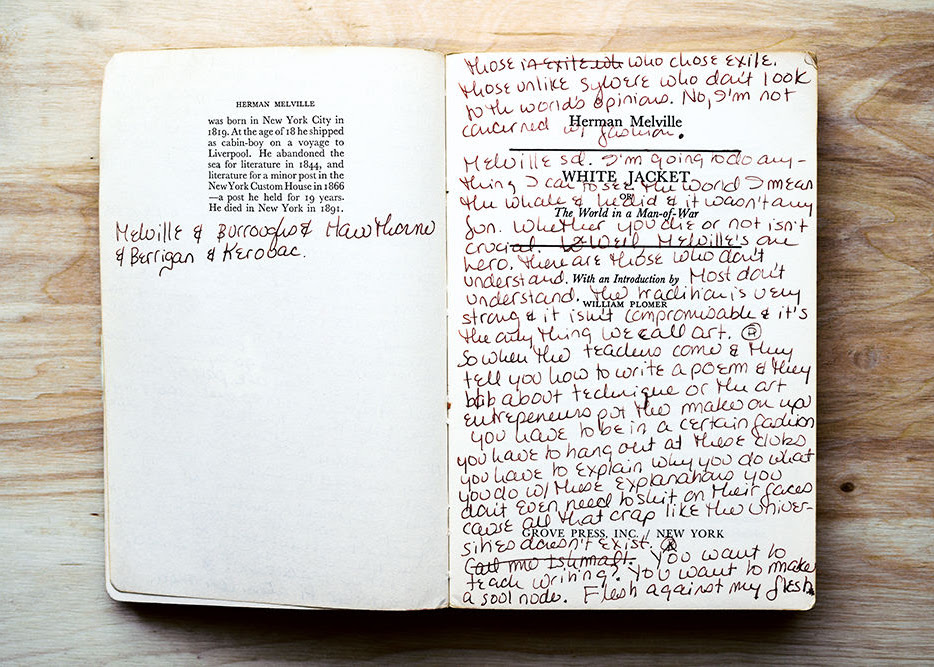 HERMAN MELVILLE
was born in New York City in
1819. At the age of 18 he shipped
as cabin-boy on a voyage to
Liverpool. He abandoned the
sea for literature in 1844, and
literature for a minor post in the
New York Custom House in 1866
—a post he held for 19 years.
He died in New York in 1891.
Melville & Burroughs & Hawthorne
& Berrigan & Kerouac.
those in exile wh who chose exile.
those unlike sylvere who don't look
to the world's opinions. No, I'm not
Herman Melville
concerned w/ fashion.
Melville sd. I'm going to do any-
thing I can to see the world I mean
WHITE JACKET
OR
the whale & he did & it wasn't any
The World in a Man-of-War
fun. Whether you die or not isn't
crucial. Well Melville's one
hero. there are those who don't
understand. Most don't
With an Introduction by
understand. the tradition is very
WILLIAM PLOMER
strong & it isn't compromisable & it's
the only thing we call art.
So when the teachers come & they
tell you how to write a poem & they
blab about technique or the art
entrepeneurs put the make on up
you have to be in a certain fashion
you have to hang out at these clubs
you have to explain why you do what
you do w/ these explanations you
don't even need to shit on their faces
cause all that crap like the univer-
GROVE PRESS, INC. / NEW YORK
sities doesn't exist.
Call me Ishmael. You want to
teach writing? You want to make
a soul node. Flesh against my flesh